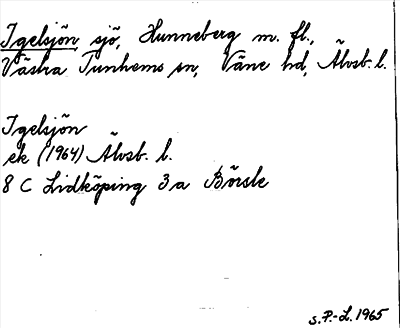 Igelsjön, sjö, Hunneberg m. fl.,
Västra Tunhems sn, Väne hd, Älvsb. l.
Igelsjön
ek (1964) Älvsb. l.
8 C Lidköping 3 a Börsle
S. P.-L. 1965